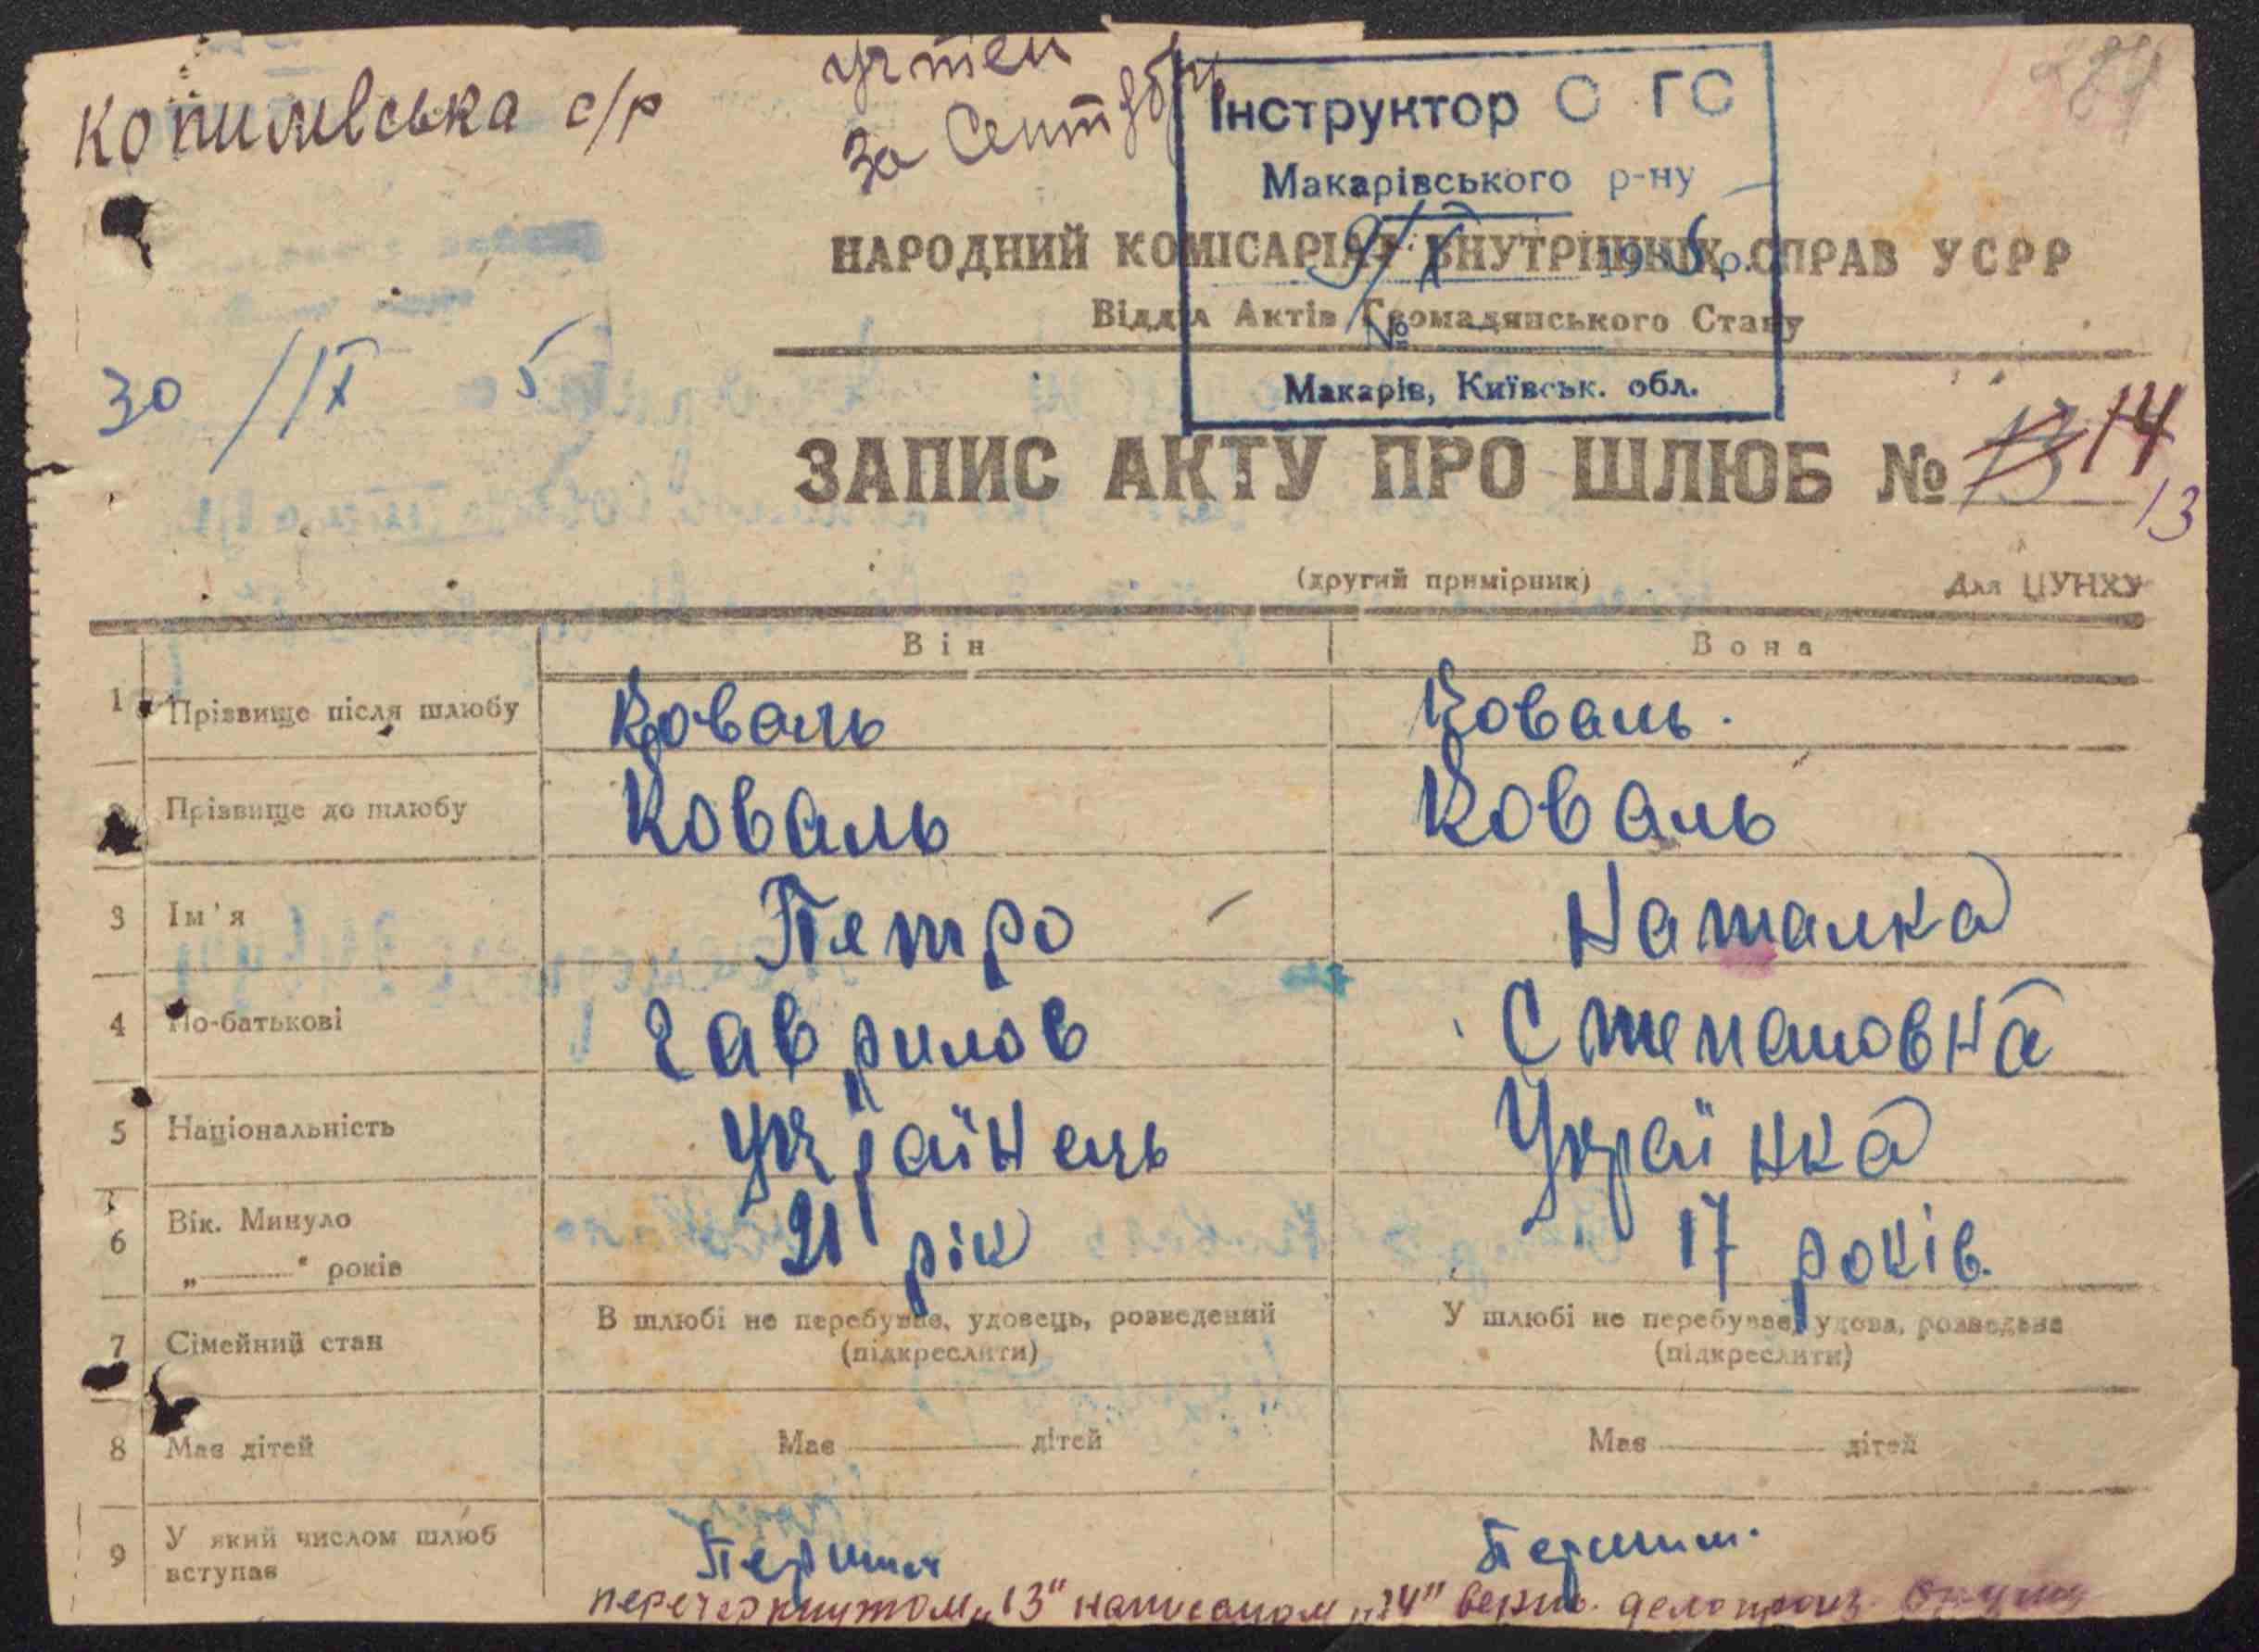 Копилівська с/р
учтен
за Сентябр
284
Інструктор О ГС
Макарівського р-ну
9/X 1936 р.
№
Макарів, Київськ. обл.
НАРОДНИЙ КОМІСАРІЯТ ВНУТРІШНІХ СПРАВ УСРР
Відділ Актів Громадянського Стану
30/IX 5
ЗАПИС АКТУ ПРО ШЛЮБ № 13 14
13
(другий примірник) Для ЦУНХУ
Він Вона
1 Прізвище після шлюбу Коваль Коваль.
2 Прізвище до шлюбу Коваль Коваль
3 Ім'я Петро Наталка
4 По-батькові Гаврилов Степановна
5 Національність Українець Українка
6 Вік. Минуло „———" років 21 рік 17 років.
7 Сімейний стан В шлюбі не перебував, удовець, розведений (підкреслити) У шлюбі не перебуває, удова, розведена (підкреслити)
8 Має дітей Має ——— дітей Має ——— дітей
9 У який числом шлюб вступає Першим Першим.
перечеркнутом „13" написаном „14" верить. делопроиз.